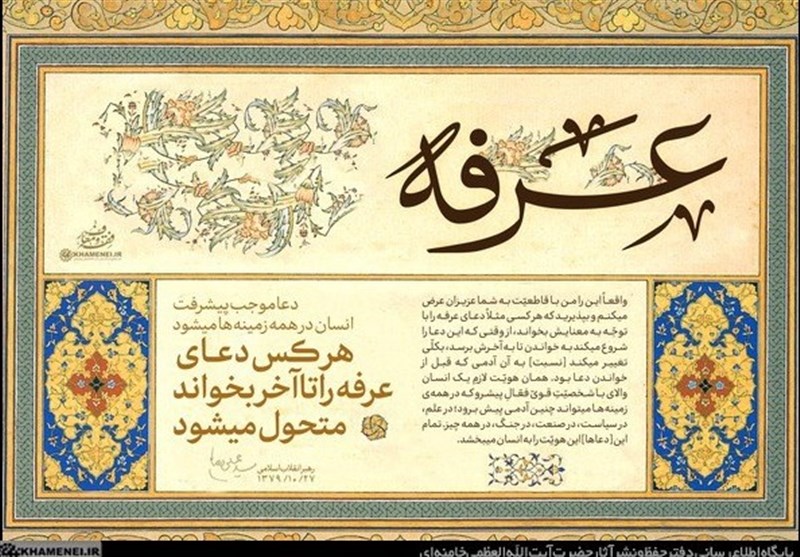 عرفه
KHAMENEI.IR
دعا موجب پیشرفت
انسان در همه زمینه‌ها میشود
هر کس دعای
عرفه را تا آخر بخواند
متحول میشود
رهبر انقلاب اسلامی
۱۳۷۹/۱۰/۲۷
واقعاً این را من با قاطعیّت به شما عزیزان عرض
میکنم و بپذیرید که هر کسی مثلاً دعای عرفه را با
توجّه به معنایش بخواند، از وقتی که این دعا را
شروع میکند به خواندن تا به آخرش برسد، بکلّی
تغییر میکند [نسبت] به آن آدمی که قبل از
خواندن دعا بود. همان هویّت لازم یک انسان
والای با شخصیّتِ قویّ فعّالِ پیشرو که در همه‌ی
زمینه‌ها میتواند چنین آدمی پیش برود؛ در علم،
در سیاست، در صنعت، در جنگ، در همه چیز. تمام
این [دعاها] این هویّت را به انسان میبخشد.
KHAMENEI.IR
پایگاه اطلاع رسانی دفتر حفظ و نشر آثار حضرت آیت الله العظمی خامنه‌ای